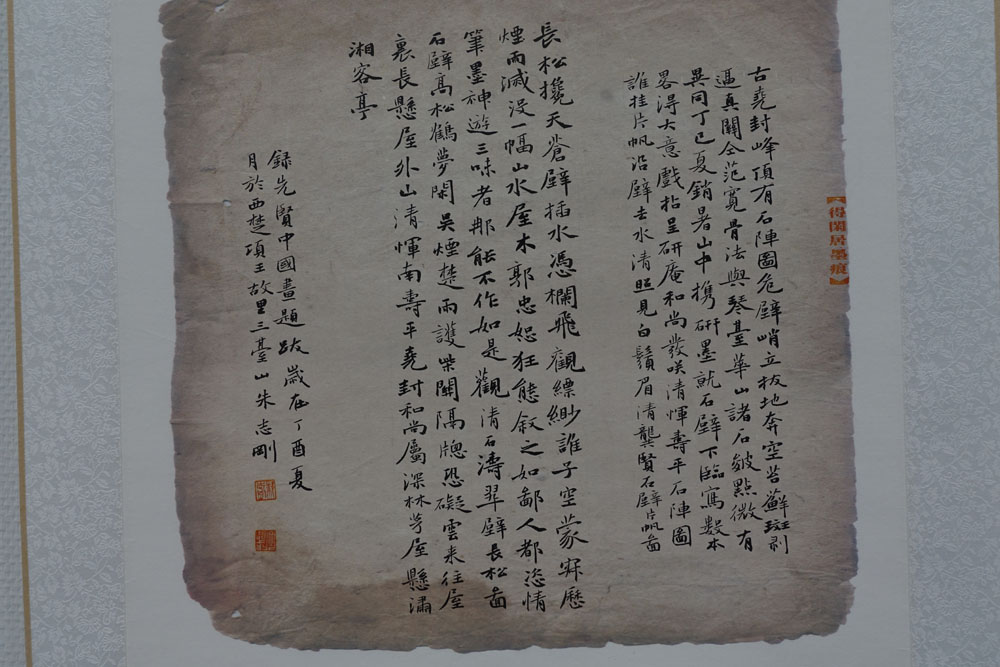 古堯封峰頂有石陣圖危壁峭立拔地奔空苔蘚斑剥
逼真關仝范寬骨法與琴臺華山諸石皴點微有
異同丁巳夏銷暑山中携研墨就石壁下臨寫數本
畧得大意戲拈呈研庵和尚發咲清惲壽平石陣圖
誰挂片帆沿壁去水清照見白鬚眉清龔賢石壁片帆啚
長松攙天蒼壁插水憑欄飛觀縹緲誰子空蒙寂歷
煙雨滅没一幅山水屋木郭忠恕狂態叙之如鄙人都恣情
筆墨神遊三味者那能不作如是觀清石濤翠壁長松啚
石壁高松鶴夢閑吳煙楚雨護柴關隔牎恐礙雲来往屋
裏長懸屋外山清惲南壽平堯封和尚屬深林茅屋懸瀟
湘客亭
録先賢中國畫題跋歲在丁酉夏
月於西楚項王故里三臺山朱志剛
得閑居墨痕